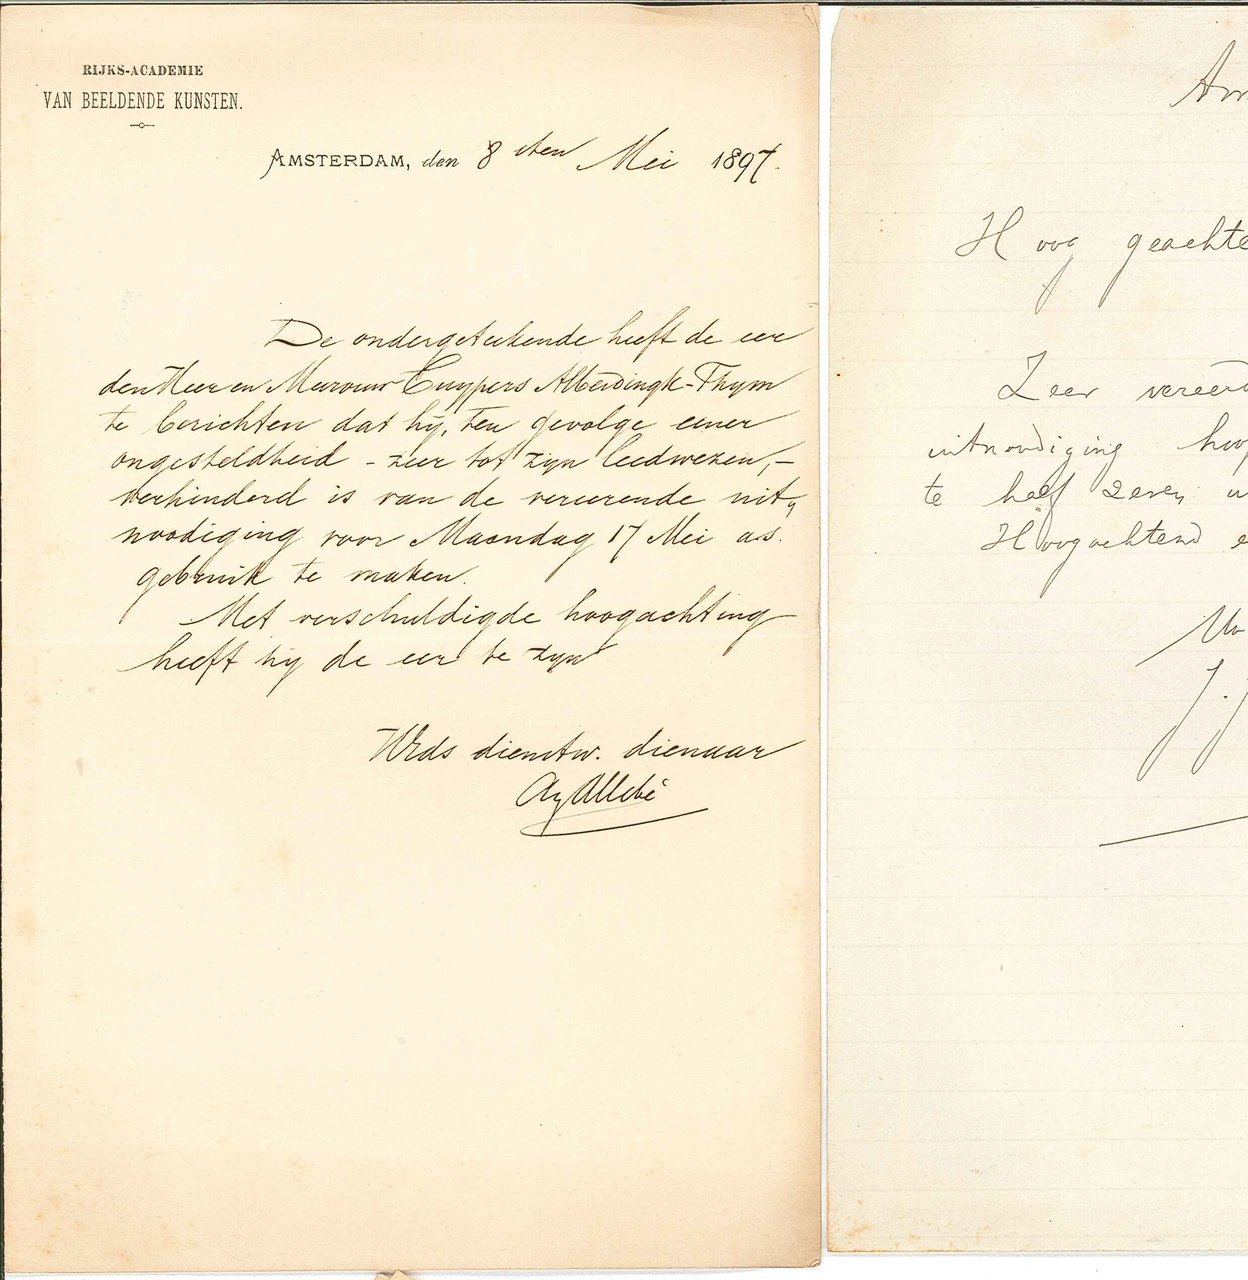 RIJKS-ACADEMIE
VAN BEELDENDE KUNSTEN.
AMSTERDAM, den 8sten Mei 1897.
De ondergeteekende heeft de eer
den Heer en Mevrouw Cuypers Alberdingk-Thym
te berichten dat hij, ten gevolge eener
ongesteldheid - zeer tot zijn leedwezen, -
verhinderd is van de vereerende uit,,
noodiging voor Maandag 17 Mei a.s.
gebruik te maken.
Met verschuldigde hoogachting
heeft hij de eer te zijn
UEds dienstw. dienaar
Aug Allebé
Am
Hoog geachte
Zeer vereerd
uitnoodiging
te half zeven
Hoogachtend
J. J